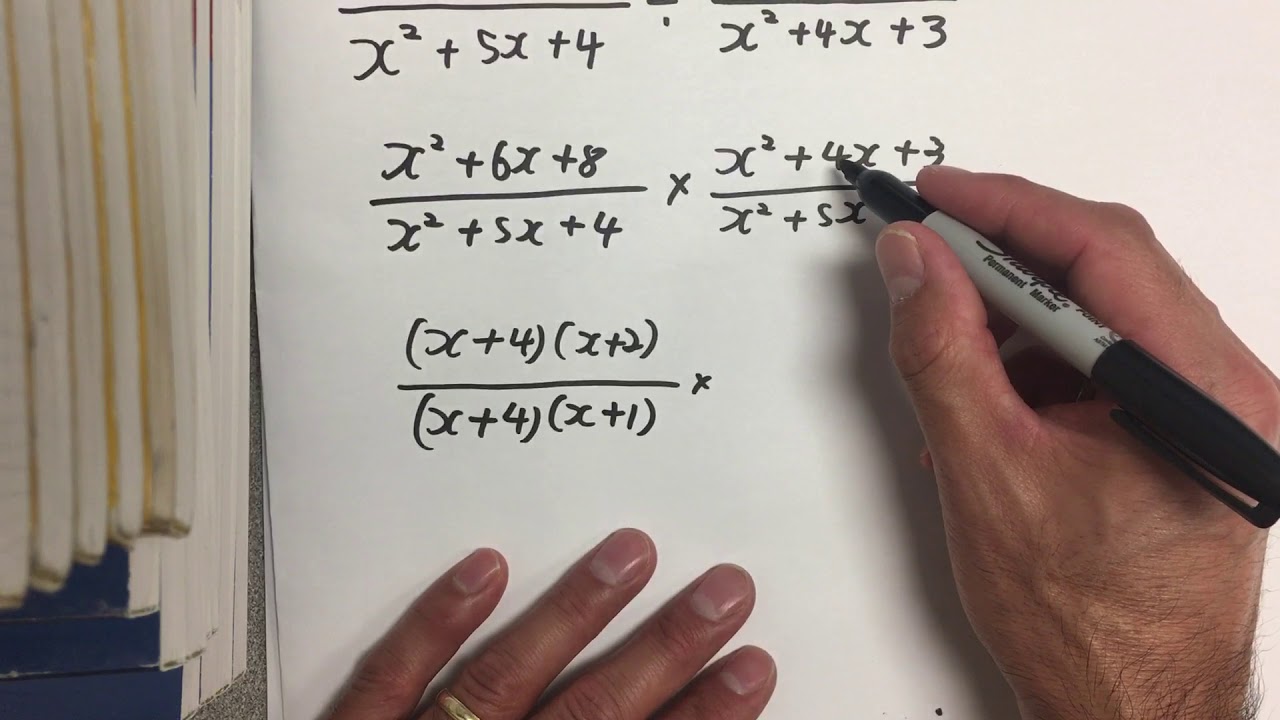 x² + 5x + 4 ÷ x² + 4x + 3
x² + 6x + 8 × x² + 4x + 3
x² + 5x + 4 x² + 5x
(x + 4) (x + 2) ×
(x + 4) (x + 1)
Sharpie.
Permanent Marker